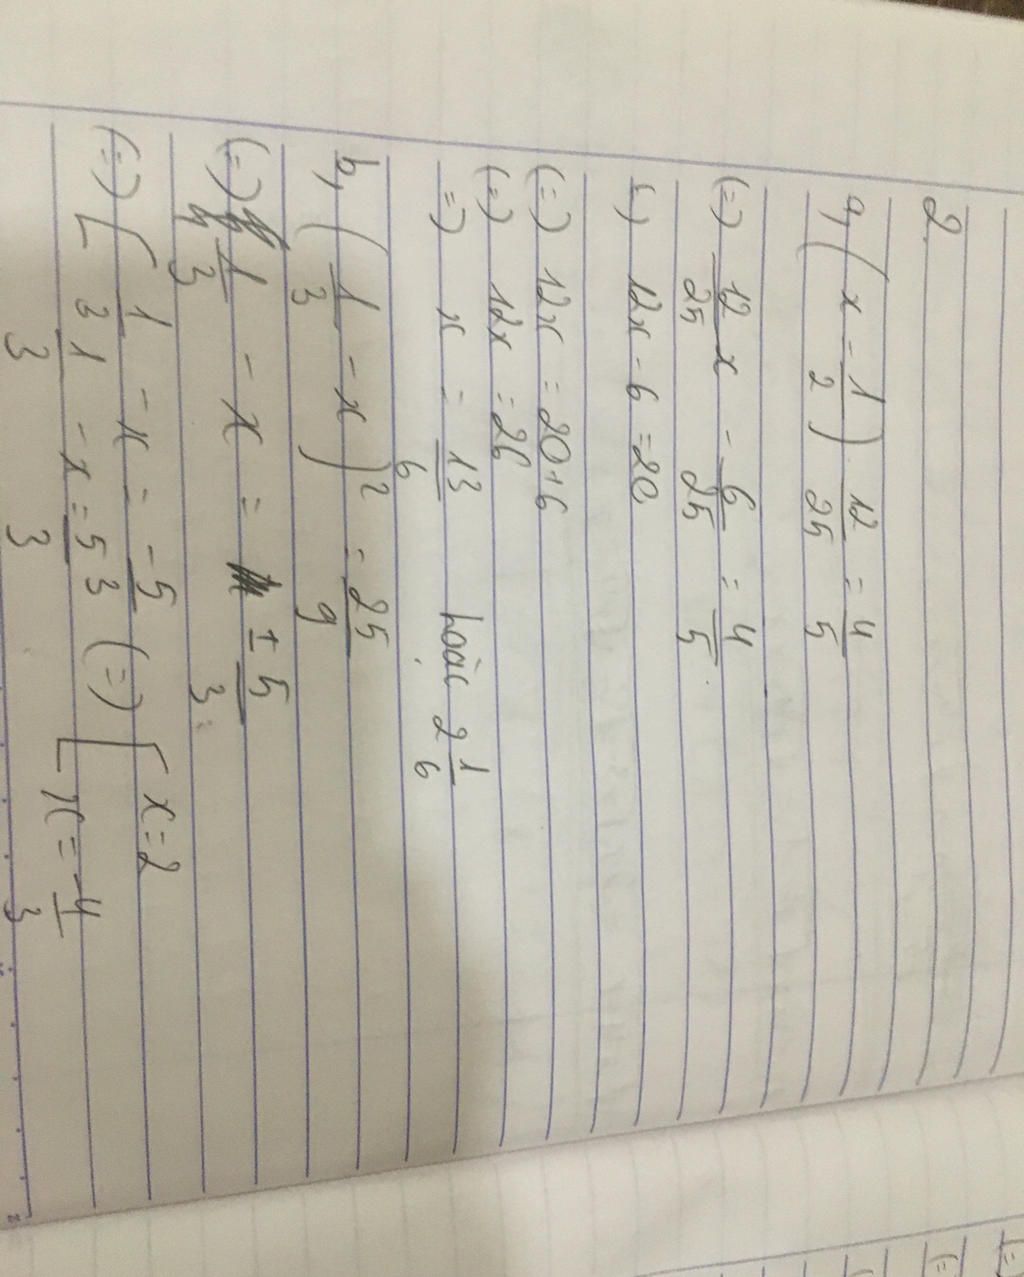 2.
a, (x - 1/2) . 12/25 = 4/5
(=) 12/25 x - 6/25 = 4/5
(=) 12x - 6 = 20
(=) 12x = 20+6
(=) 12x = 26
=) x = 13/6 hoặc 2 1/6
b, (1/3 - x)² = 25/9
(=) 1/3 - x = ± 5/3
(=) [ 1/3 - x = -5/3
1/3 - x = 5/3 (=) [ x = 2
x = -4/3